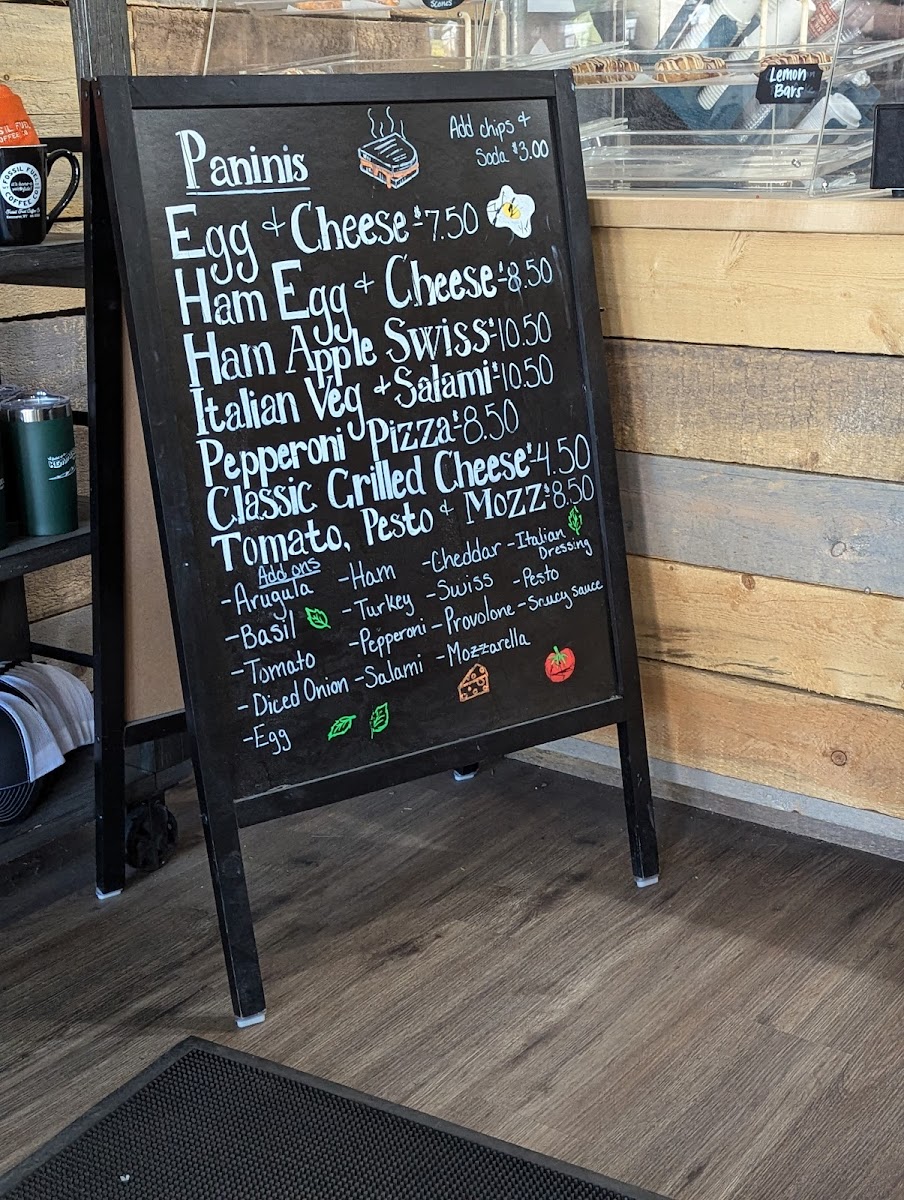 Scones
Lemon
Bars
FOSSIL FUEL
COFFEE CO.
Paninis
Add chips +
Soda $3.00
Egg + Cheese-$7.50
Ham Egg + Cheese-$8.50
Ham Apple Swiss-$10.50
Italian Veg + Salami-$10.50
Pepperoni Pizza-$8.50
Classic Grilled Cheese-$4.50
Tomato, Pesto + Mozz-$8.50
Add ons
-Arugula
-Basil
-Tomato
-Diced Onion
-Egg
-Ham
-Turkey
-Pepperoni
-Salami
-Cheddar
-Swiss
-Provolone
-Mozzarella
-Italian
Dressing
-Pesto
-Saucy sauce